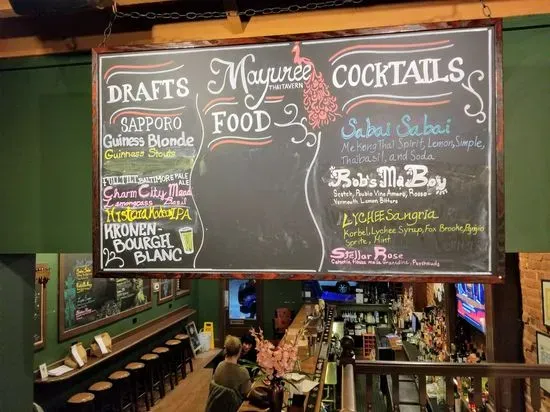 DRAFTS
SAPPORO
Guiness Blonde
Guinness Stout
FULL TILT BALTIMORE PALE
Charm City Mead
Lemongrass Basil
IPA
KRONEN-
BOURGH
BLANC
Mayuree
THAI TAVERN
FOOD
COCKTAILS
Sabai Sabai
Mekong Thai Spirit, Lemon, Simple,
Thai basil, and Soda
Rob's Ma Boy
Scotch, Vino Amaro, Rosso
Vermouth, Lemon Bitters
LYCHEE Sangria
Korbel, Lychee Syrup, Fox Brooke,
Sprite, Mint
Stellar Rose